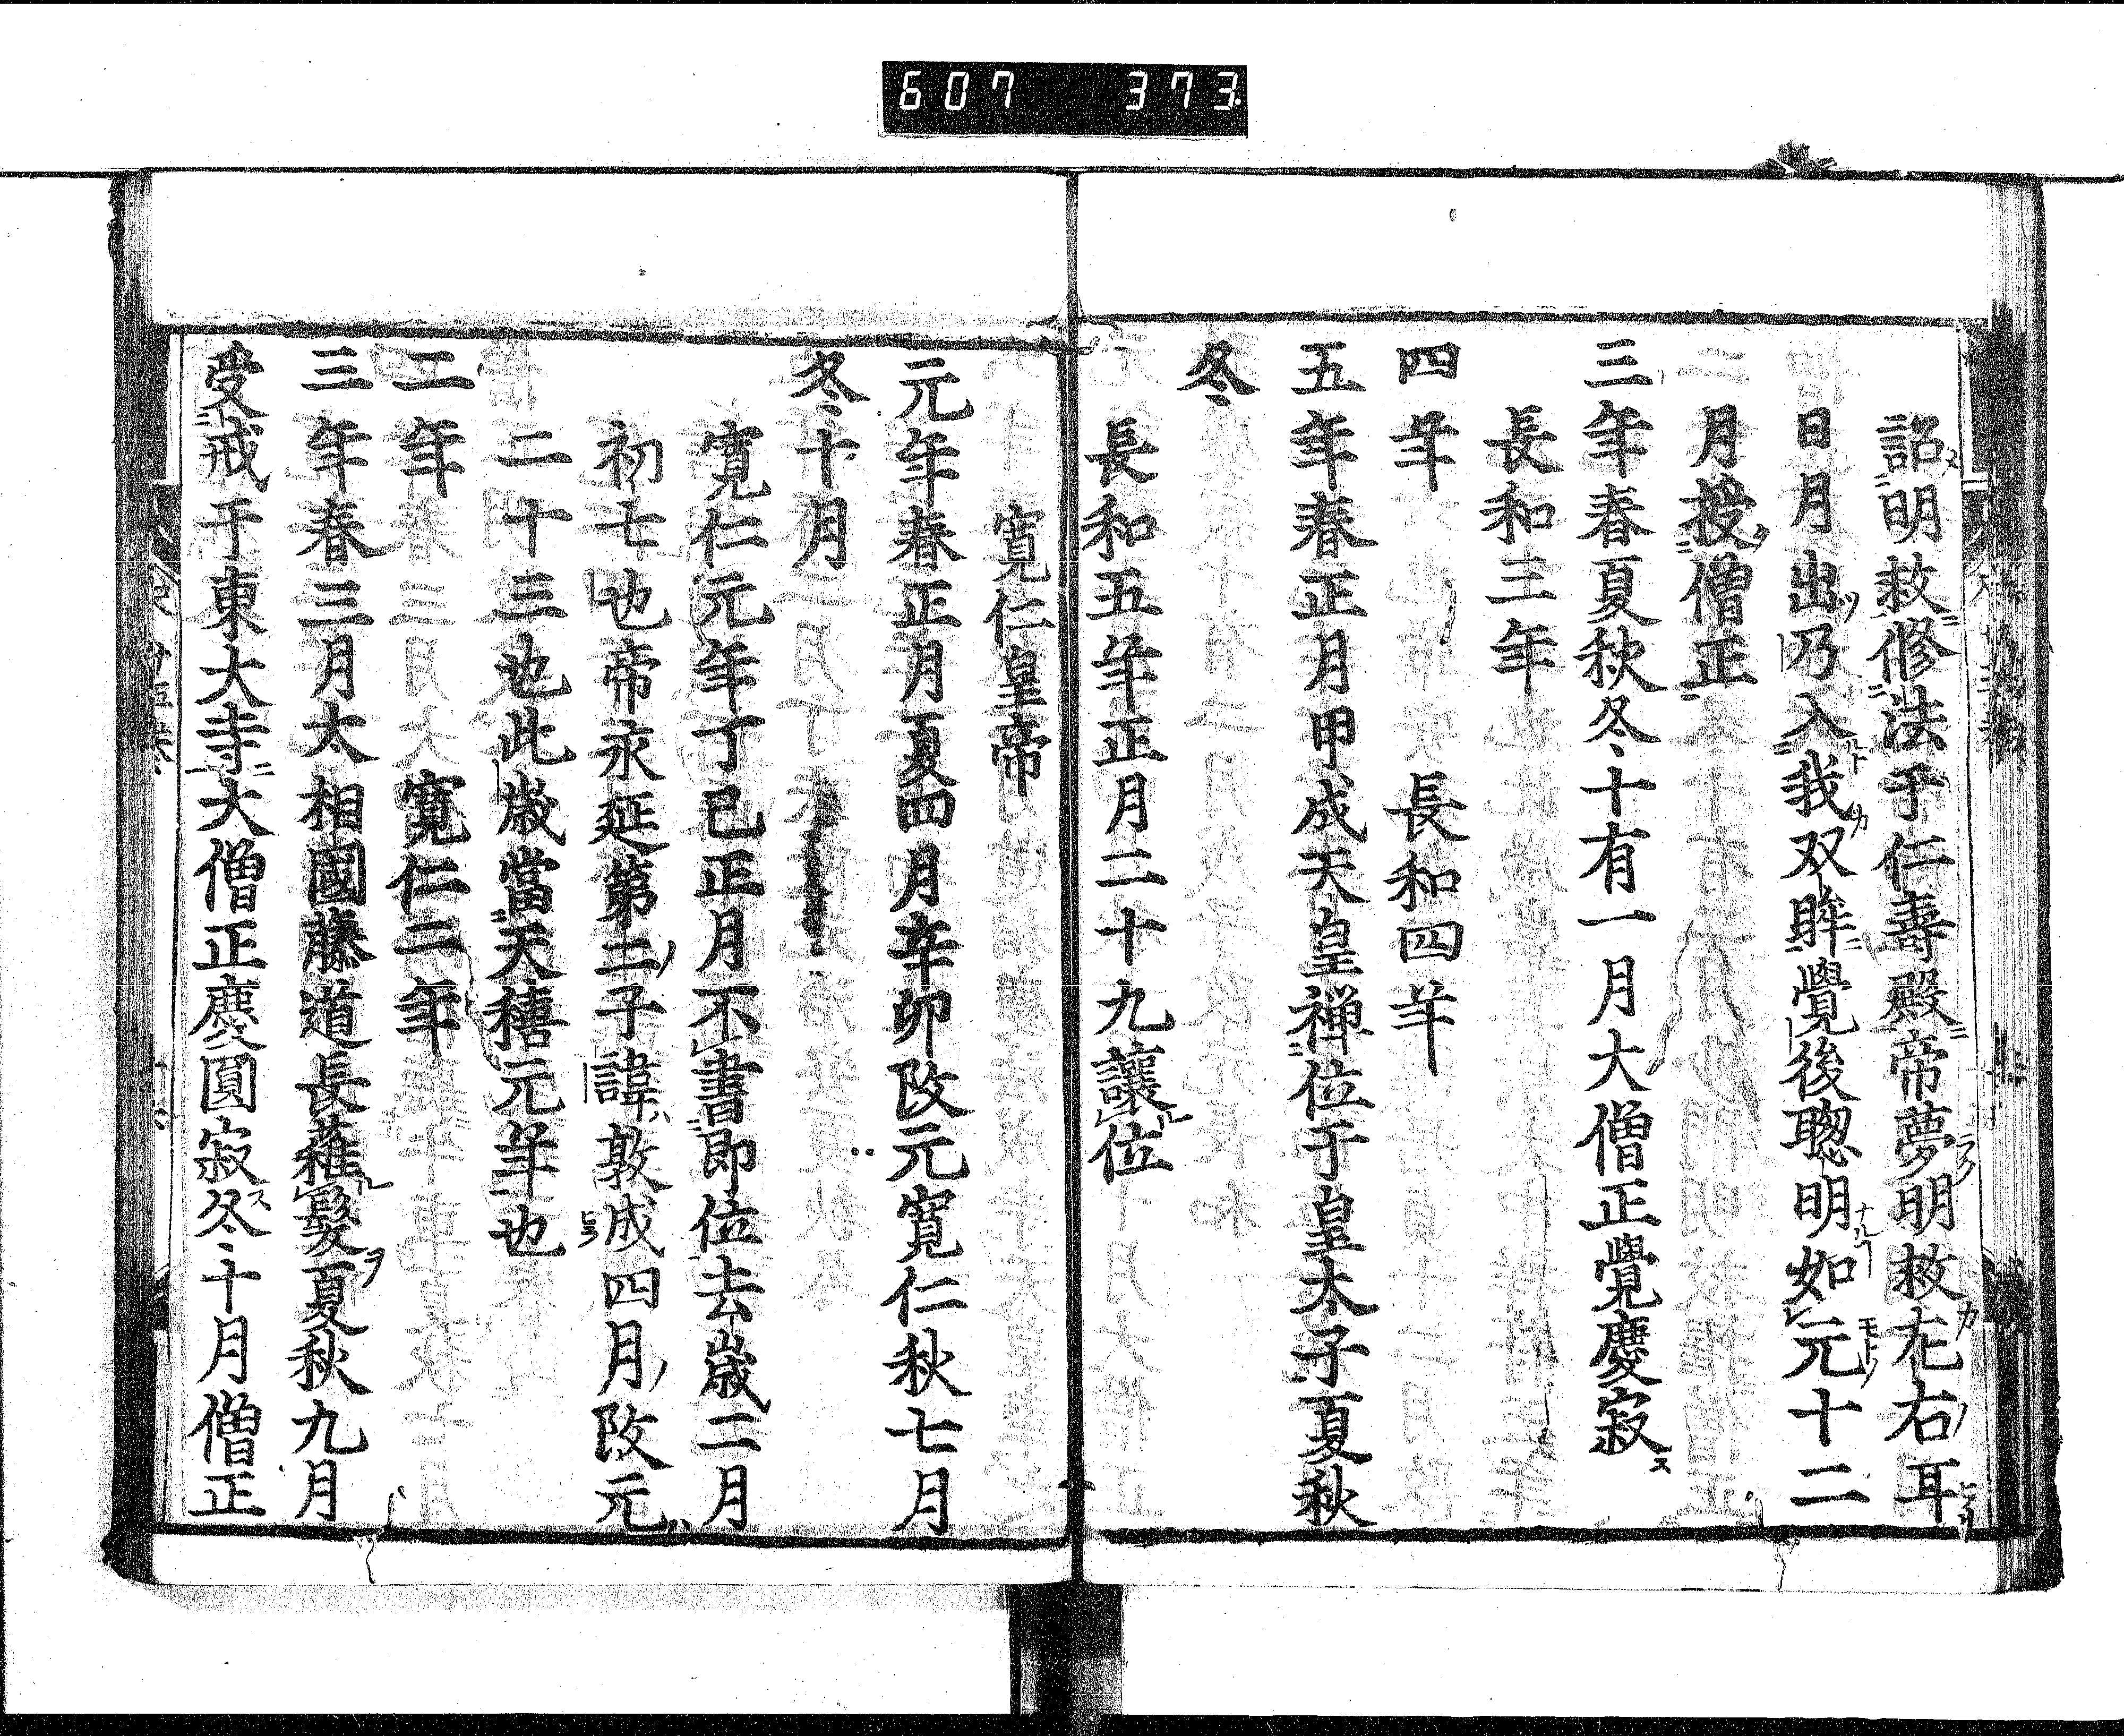 607 373
詔明救修法于仁壽殿帝夢明救左右耳
日月出乃入我双眸覺後聰明如元十二
月授僧正
三年春夏秋冬十有一月大僧正覺慶寂
長和三年
四年 長和四年
五年春正月甲戌天皇禅位于皇太子夏秋
冬
長和五年正月二十九讓位
寛仁皇帝
元年春正月夏四月辛卯改元寛仁秋七月
冬十月
寛仁元年丁巳正月不書即位去歳二月
初七也帝永延第二子諱敦成四月改元
二十三也此歳當天禧元年也
二年 寛仁二年
三年春三月太相國藤道長薙髮夏秋九月
受戒于東大寺大僧正慶圓寂冬十月僧正